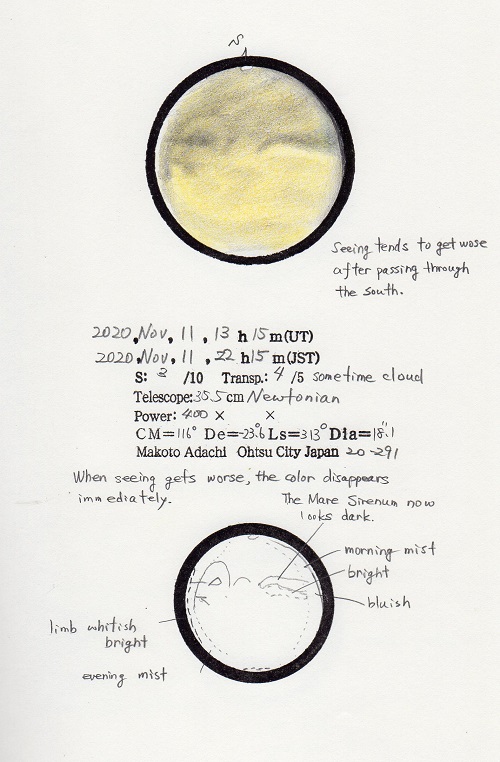 S
Seeing tends to get wose
after passing through
the south.
2020, Nov, 11, 13 h 15 m(UT)
2020, Nov, 11, 22 h 15 m(JST)
S: 3 /10 Transp.: 4 /5 sometime cloud
Telescope: 35.5 cm Newtonian
Power: 400 × ×
CM=116° De=-23.6 Ls=313° Dia=18".1
Makoto Adachi Ohtsu City Japan 20-291
When seeing gets worse, the color disappears
immediately.
The Mare Sirenum now
looks dark.
morning mist
bright
bluish
limb whitish
bright
evening mist